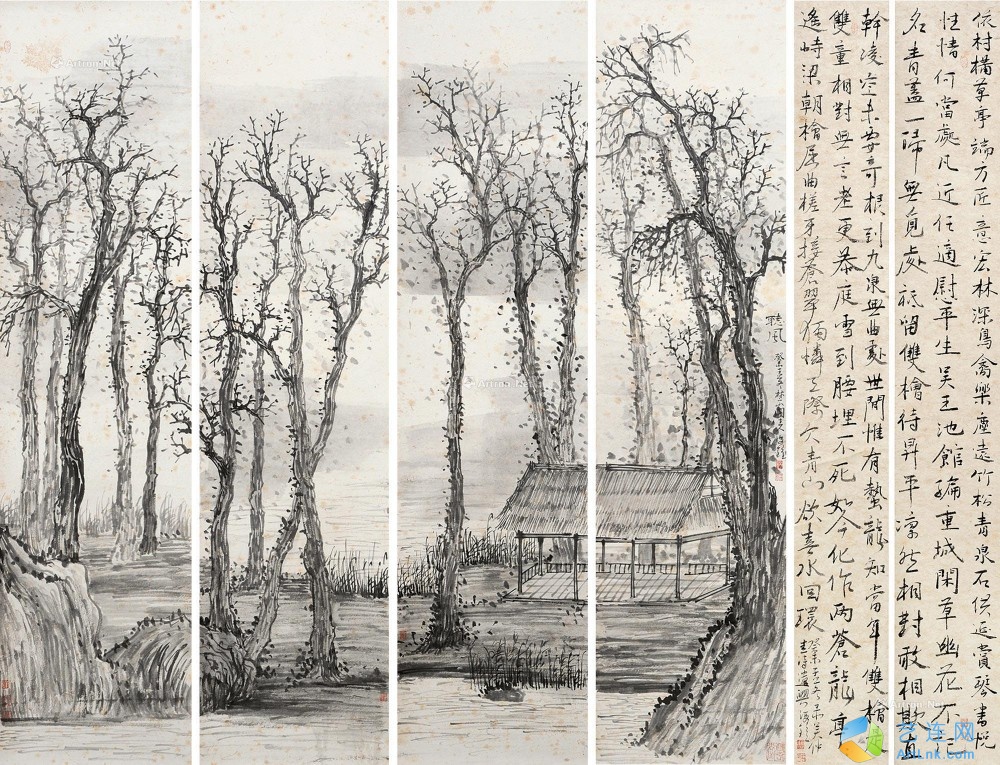 依村構草亭端方匠意宏林深鳥禽樂塵遠竹松青泉石供延賞琴書悦
性情何當處凡近任適尉平生吳王池館遍重城閑草幽花不記
名青蓋一歸無覓處祇留雙檜待昇平凜然相對敢相欺直
幹凌空未要奇根到九泉無曲處世間惟有蟄龍知當年雙檜是
雙童相對無言老更恭庭雪到腰埋不死如今化作兩蒼龍亭
遙峙梁朝檜屈曲槎牙接蒼翠 天際 青山欲 水回環
聽風
艺连网
ArtLnk.com